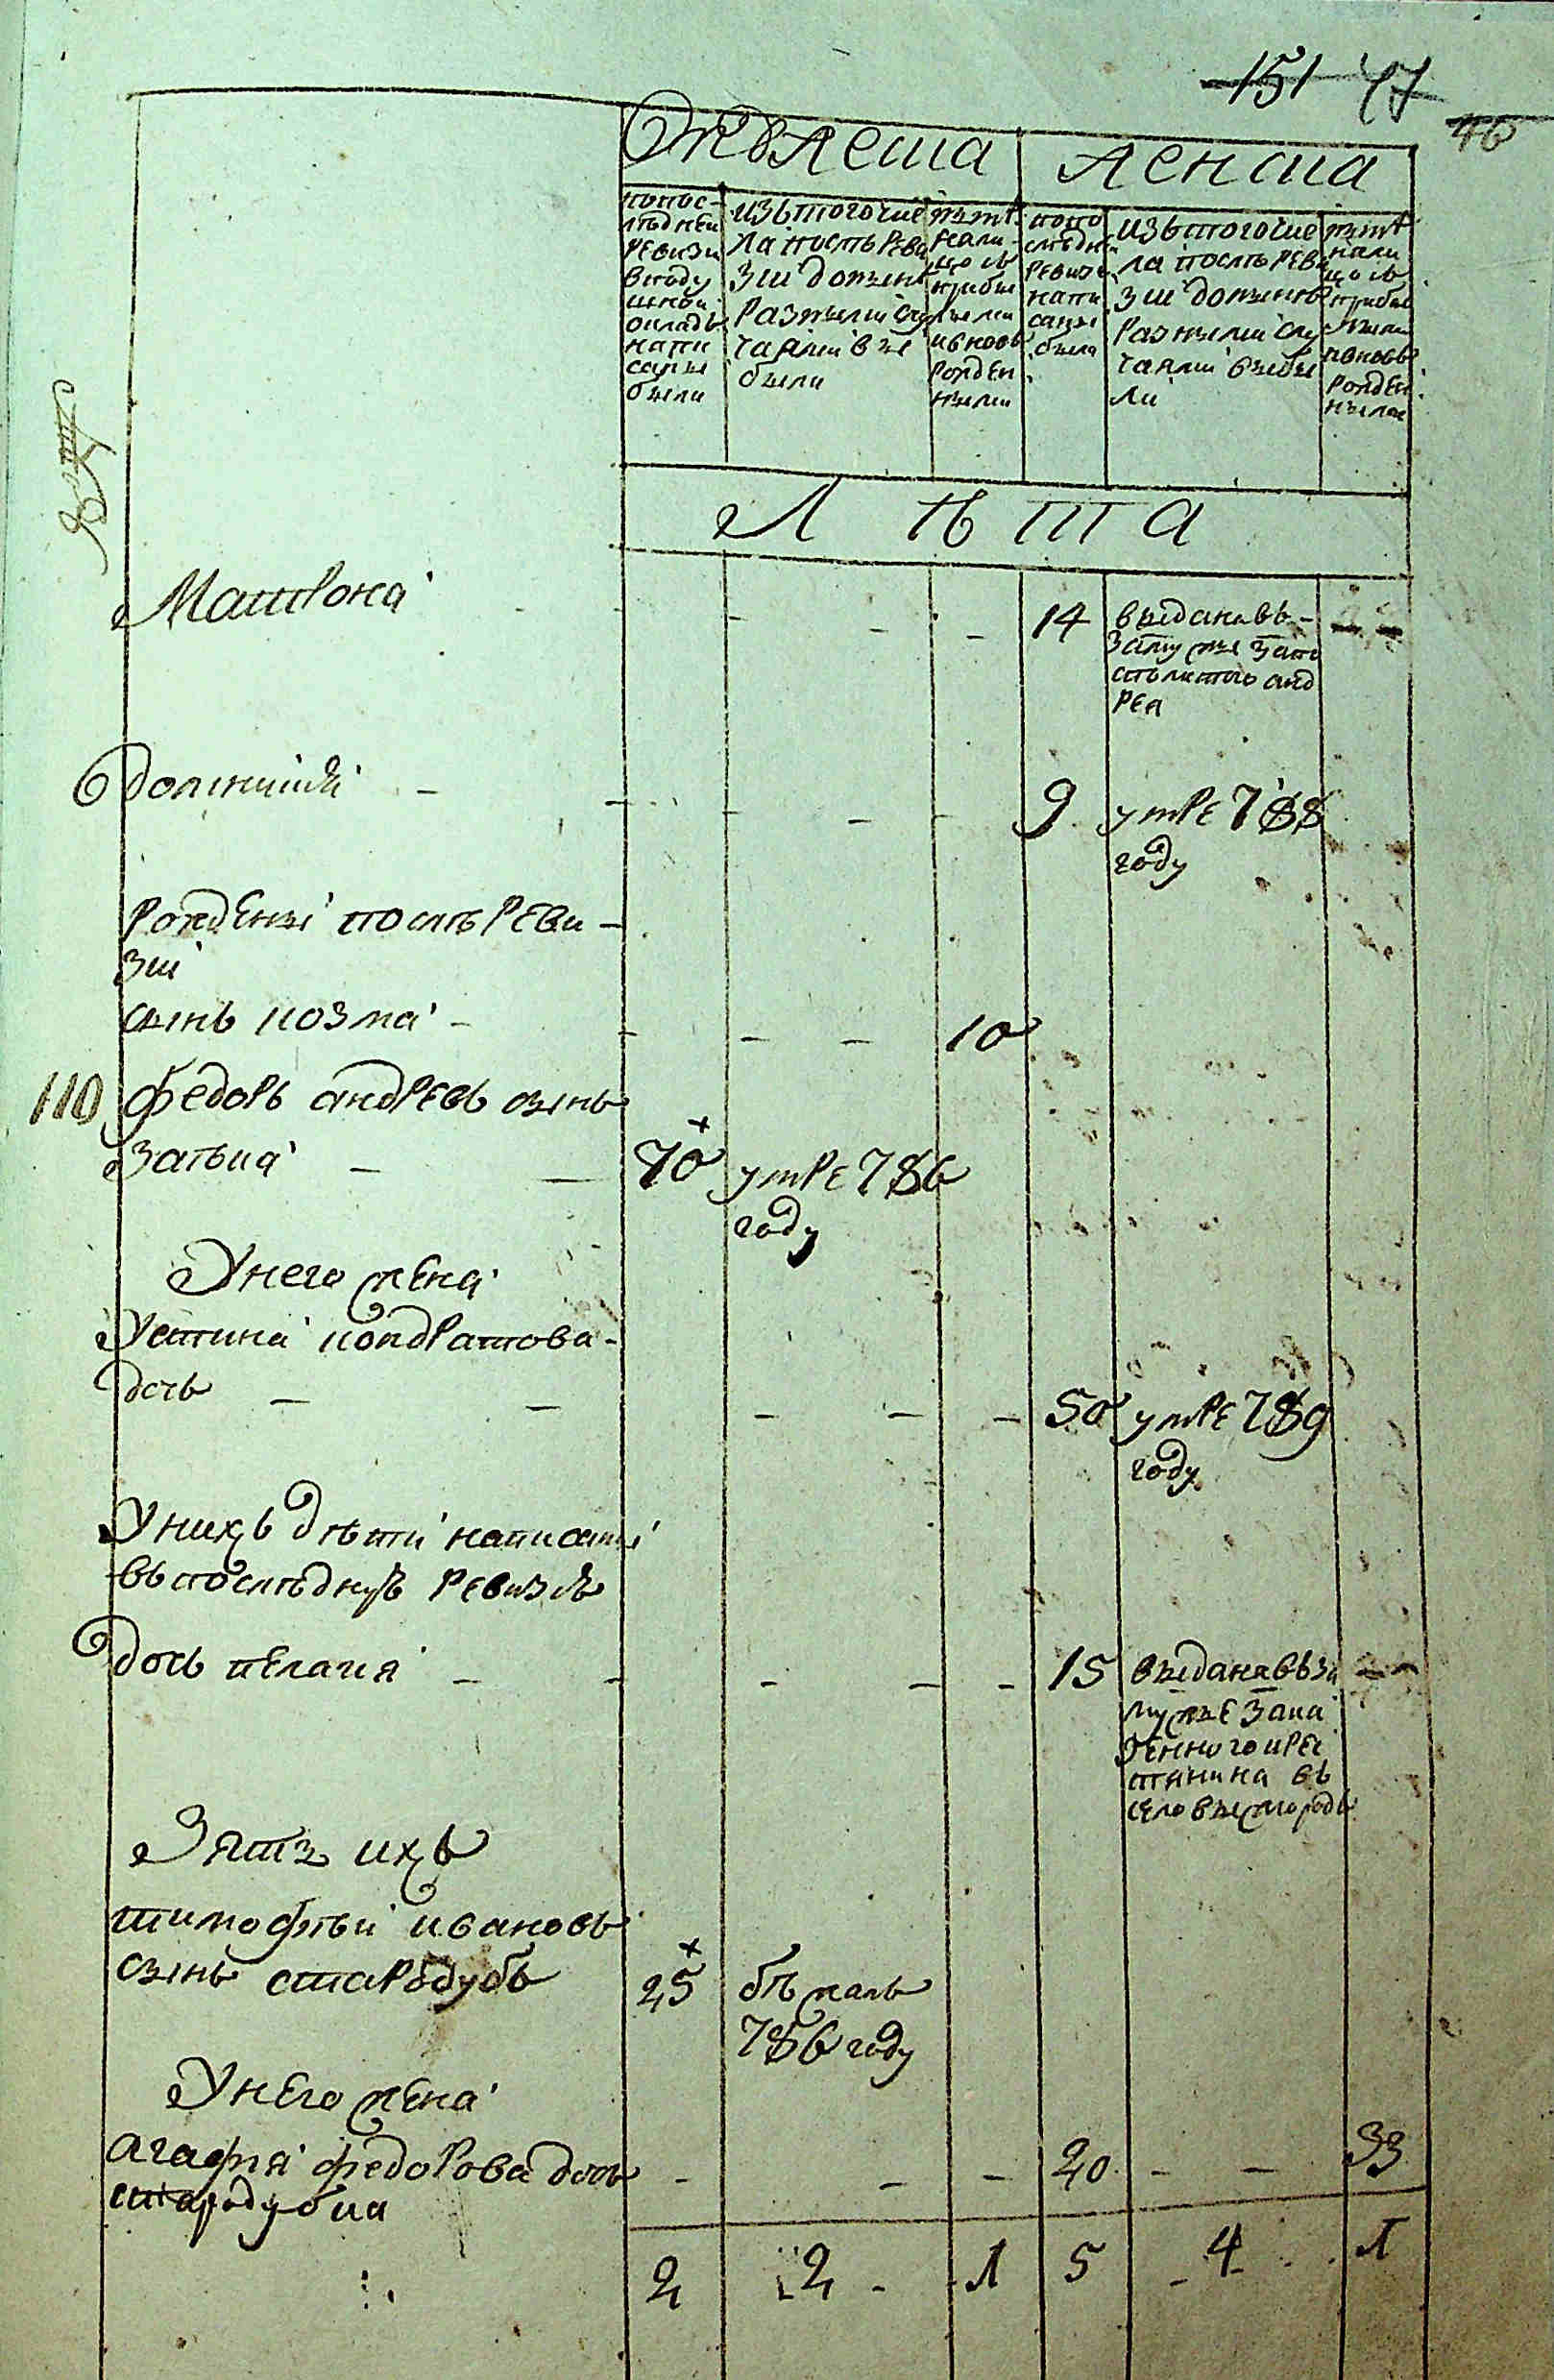 151 47
46
Мужеска женска
попос-
лѣдней
ревизи
вподу
шной
окладъ
напи
саны
были
изътогочис
ла послѣ реви
зіи доныне
разными слу
чаями вы
были
ныне
нали-
цо съ
прибы
лыми
ивновь
рожден
ными
попо
слѣдне
ревизе
напи
саны
была
изътогочис
ла послѣ реви
зіи доныне
разными слу
чаями выбы
ли
ныне
нали
цо съ
прибы
лыми
ивновь
рожден
ными
Л ѣ т а
Матрона - - - 14 выданавъ - - -
замужъ
рея
- - - - 9 умре 788
году
рождены послѣ реви-
зіи
сынъ козма - - - - 10
110 федоръ андревъ сынъ
- - 70 умре 786
году
Унего жена
Устина кондратова-
дочь - - - - - 50 умре 789
году
Унихъ дѣти написаны
въпослѣднуѣ ревизіѣ
дочь пелагия - - - - - 15 выданавъза - -
мужъе зака
зенного крес
тянина въ
село
Зять ихъ
тимофѣй ивановъ
сынъ стародубъ 25 бѣжалъ
786 году
Унего жена
агафия федорова дочь - - - 20 - - 33
стародубка
2 2 - 1 5 - 4 - 1